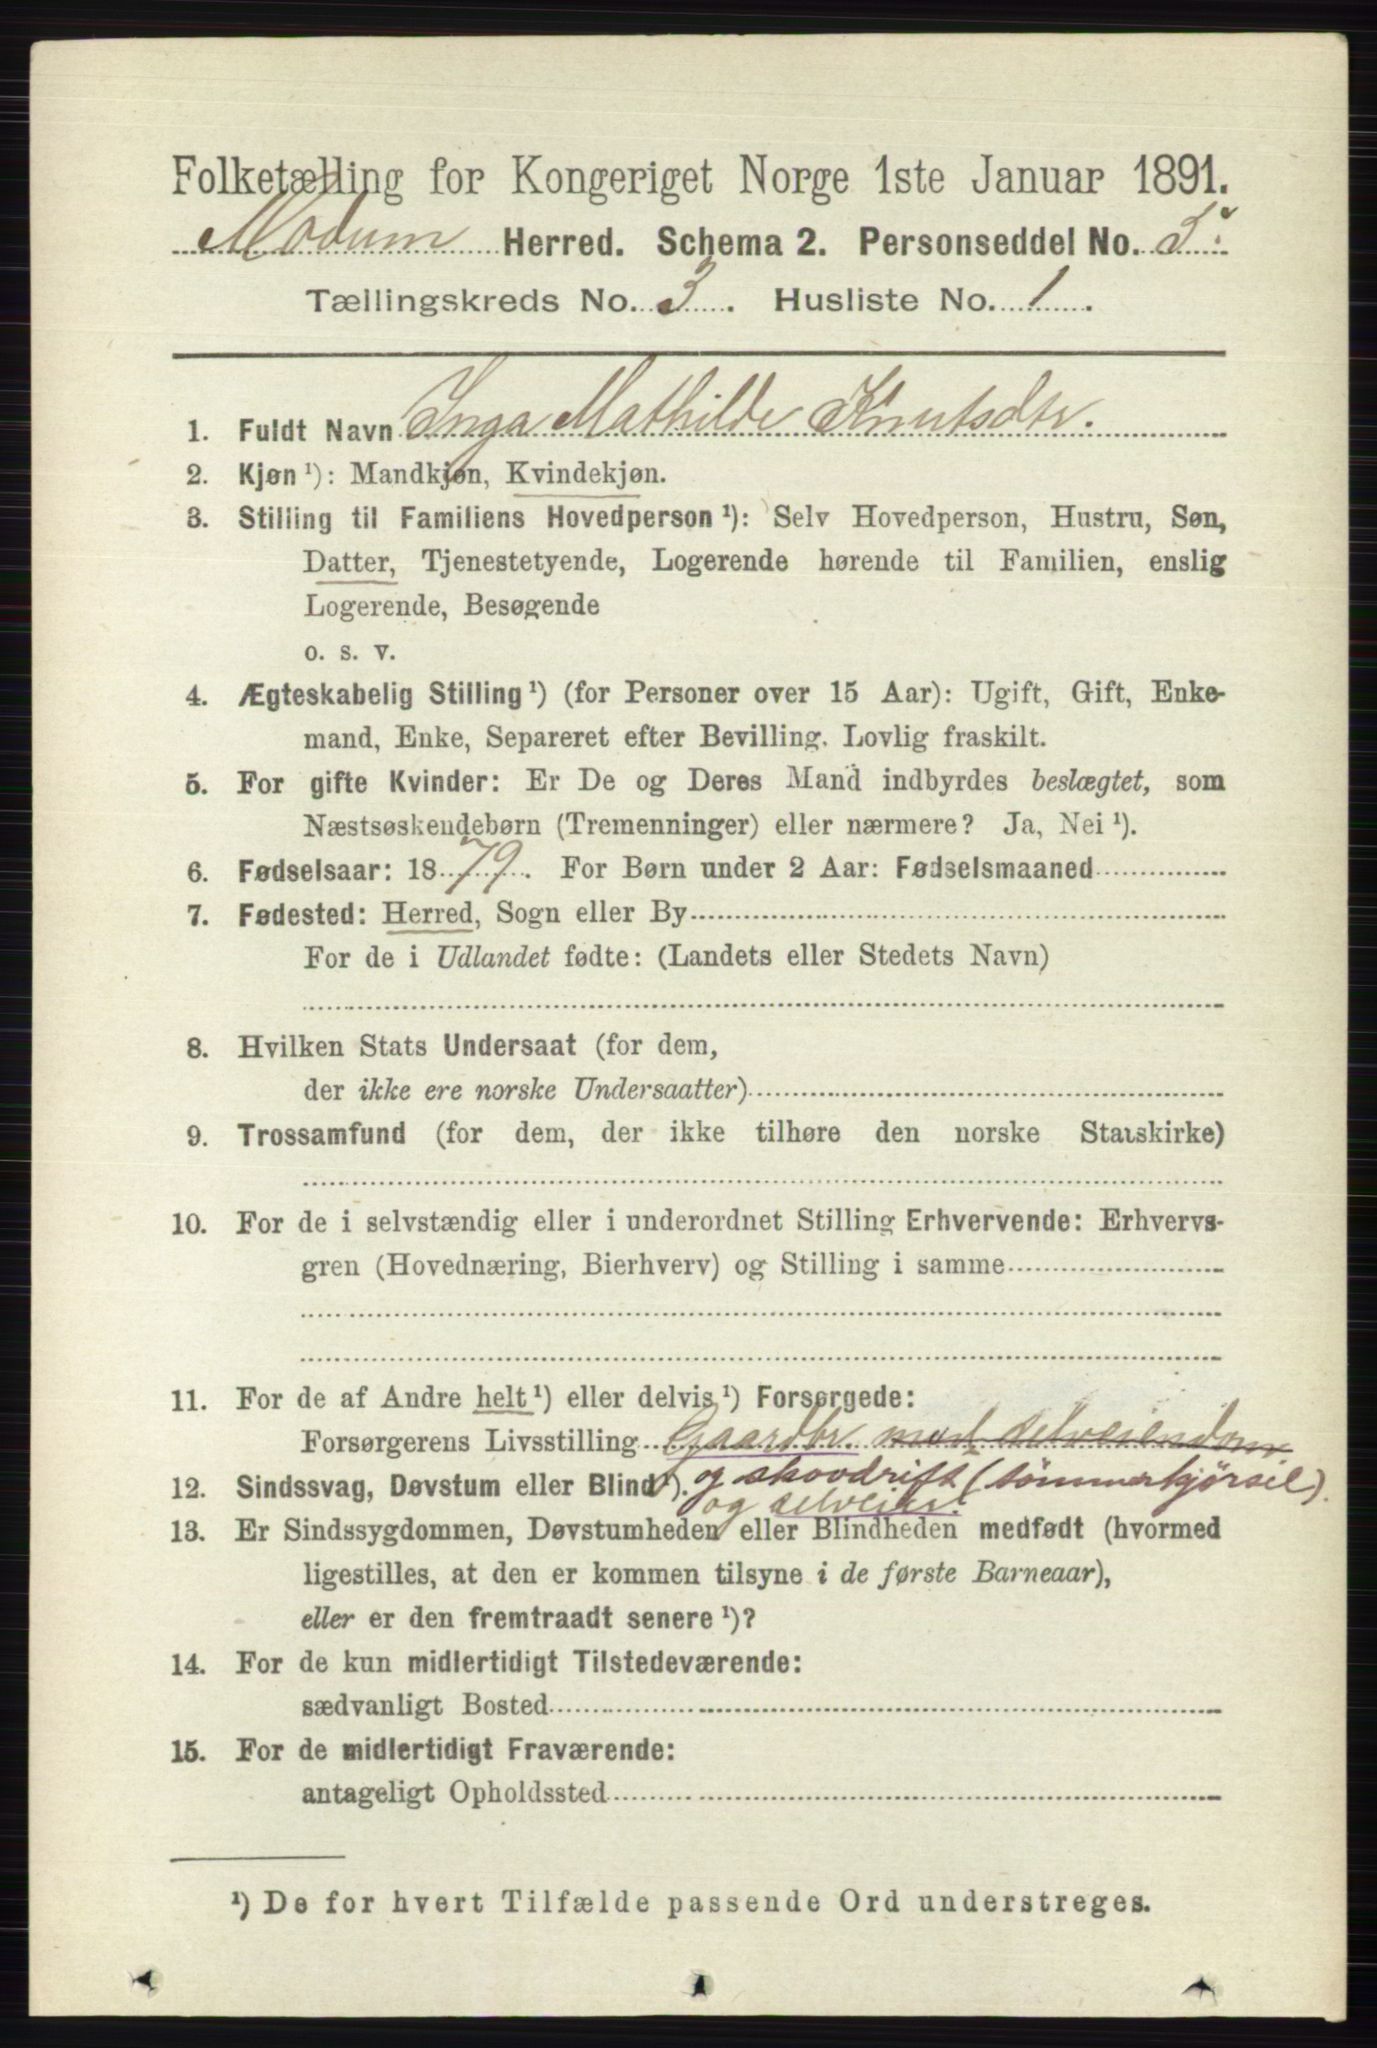 Folketælling for Kongeriget Norge 1ste Januar 1891.
Modum Herred. Schema 2. Personseddel No. 5.
Tællingskreds No. 3. Husliste No. 1.
1. Fuldt Navn Inga Mathilde Knutsdtr.
2. Kjøn ¹): Mandkjøn, Kvindekjøn.
3. Stilling til Familiens Hovedperson ¹): Selv Hovedperson, Hustru, Søn,
Datter, Tjenestetyende, Logerende hørende til Familien, enslig
Logerende, Besøgende
o. s. v.
4. Ægteskabelig Stilling ¹) (for Personer over 15 Aar): Ugift, Gift, Enke-
mand, Enke, Separeret efter Bevilling. Lovlig fraskilt.
5. For gifte Kvinder: Er De og Deres Mand indbyrdes beslægtet, som
Næstsøskendebørn (Tremenninger) eller nærmere? Ja, Nei ¹).
6. Fødselsaar: 1879. For Børn under 2 Aar: Fødselsmaaned
7. Fødested: Herred, Sogn eller By
For de i Udlandet fødte: (Landets eller Stedets Navn)
8. Hvilken Stats Undersaat (for dem,
der ikke ere norske Undersaatter)
9. Trossamfund (for dem, der ikke tilhøre den norske Statskirke)
10. For de i selvstændig eller i underordnet Stilling Erhvervende: Erhvervs-
gren (Hovednæring, Bierhverv) og Stilling i samme
11. For de af Andre helt ¹) eller delvis ¹) Forsørgede:
Forsørgerens Livsstilling Gaardbr. med selveiendom
12. Sindssvag, Døvstum eller Blind ¹). og skovdrift (tömmerkjørsel).
og selveier.
13. Er Sindssygdommen, Døvstumheden eller Blindheden medfødt (hvormed
ligestilles, at den er kommen tilsyne i de første Barneaar),
eller er den fremtraadt senere ¹)?
14. For de kun midlertidigt Tilstedeværende:
sædvanligt Bosted
15. For de midlertidigt Fraværende:
antageligt Opholdssted
¹) De for hvert Tilfælde passende Ord understreges.